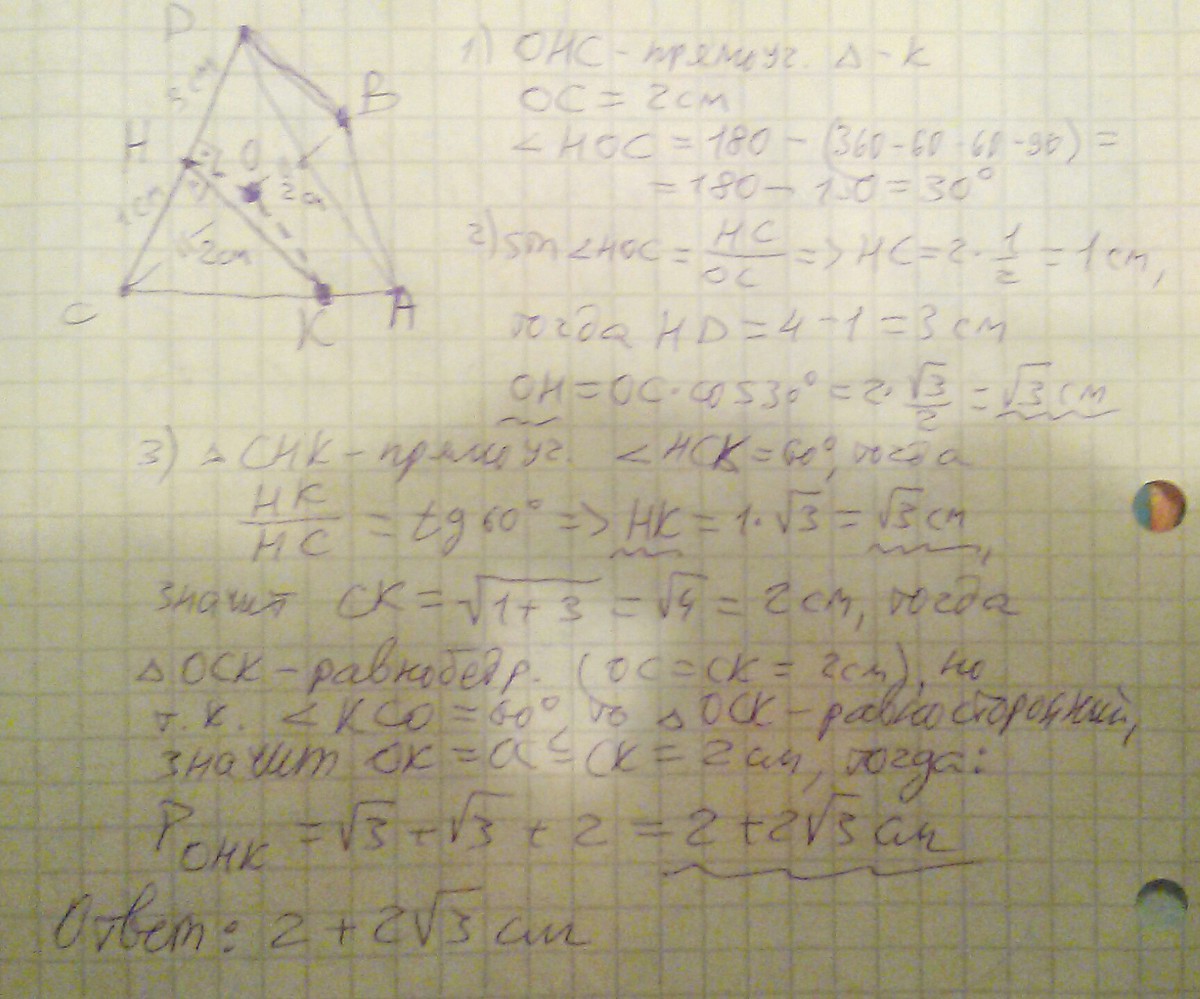 D
B
H
O
2см
√2см
C
K
A
1) OHC - прямоуг. Δ-к
OC = 2см
∠HOC = 180 - (360-60-60-90) =
= 180 - 150 = 30°
2) sin∠HOC = HC/OC => HC = 2·1/2 = 1см,
тогда HD = 4-1 = 3см
OH = OC·cos30° = 2·√3/2 = √3см
3) ΔCHK - прямоуг. ∠HCK = 60°, тогда
HK/HC = tg60° => HK = 1·√3 = √3см,
значит CK = √1+3 = √4 = 2см, тогда
ΔOCK - равнобедр. (OC=CK=2см), но
т.к. ∠KCO = 60°, то ΔOCK - равносторонний,
значит OK = OC = CK = 2см, тогда:
P OHK = √3 + √3 + 2 = 2+2√3см
Ответ: 2+2√3см